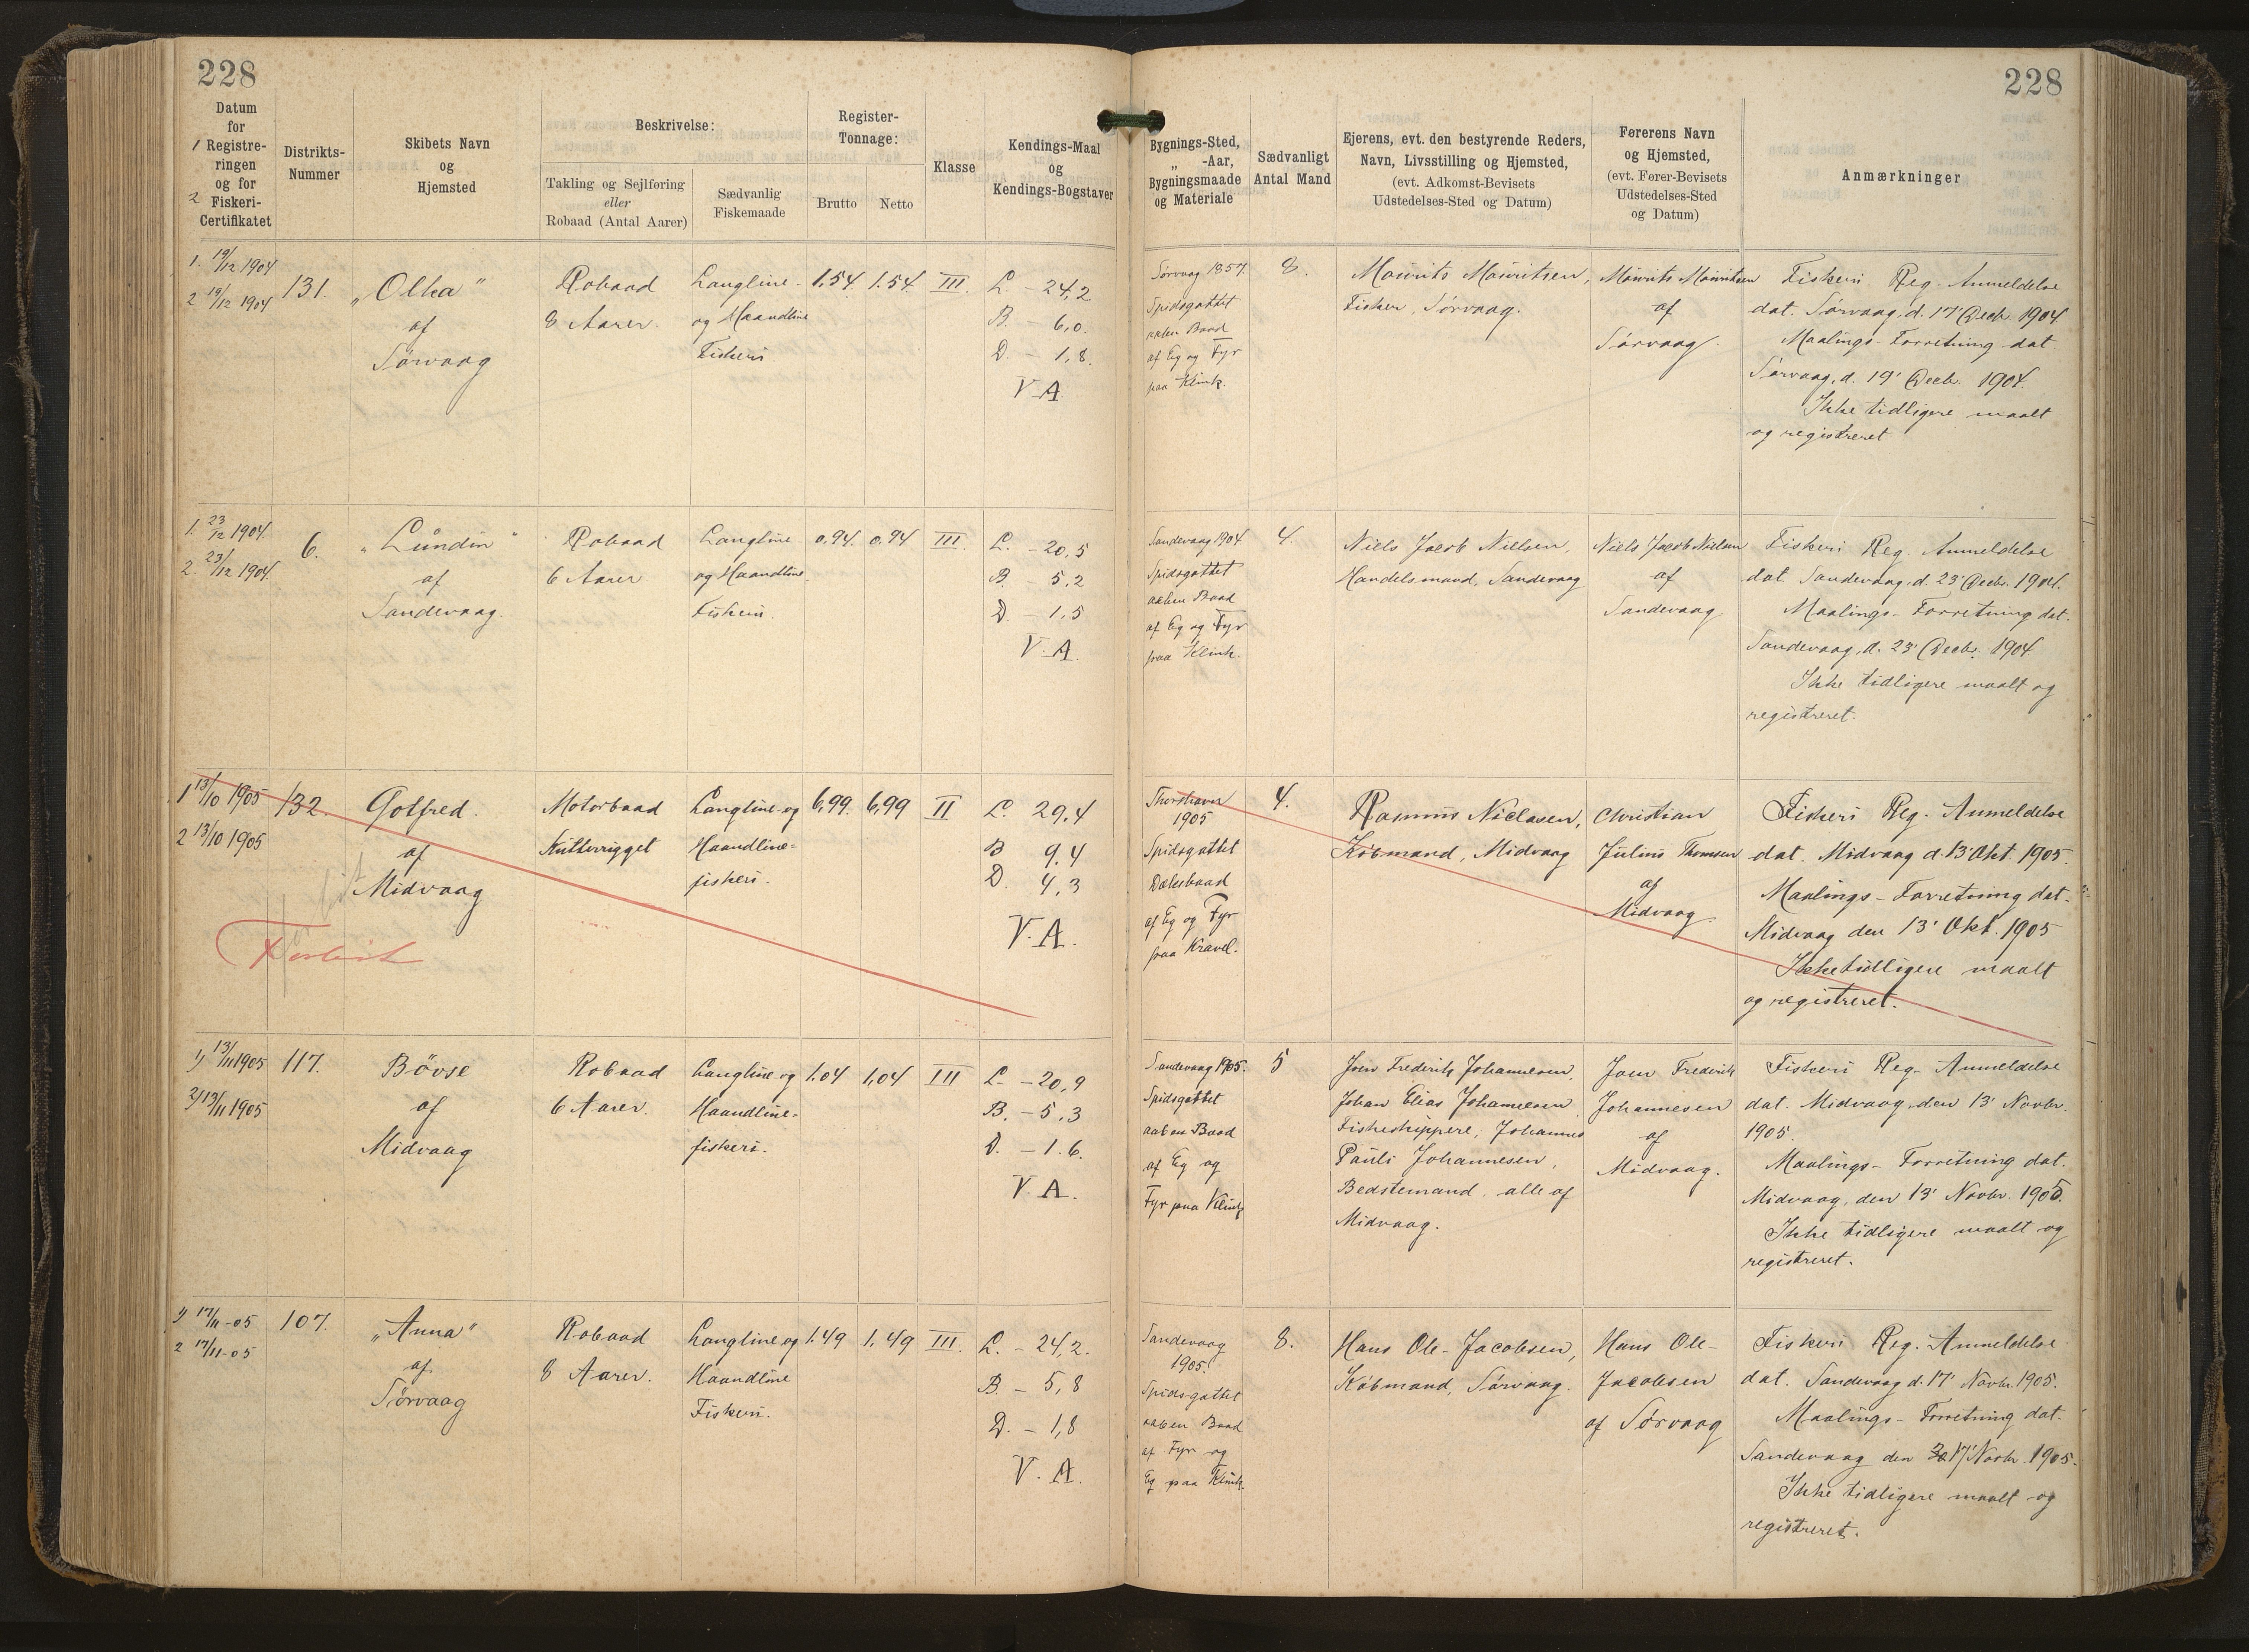 228
228
Datum
for
1 Registre-
ringen
og for
2 Fiskeri-
Certifikatet
Distrikts-
Nummer
Skibets Navn
og
Hjemsted
Beskrivelse:
Takling og Sejlføring
eller
Robaad (Antal Aarer)
Sædvanlig
Fiskemaade
Register-
Tonnage:
Brutto
Netto
Klasse
Kendings-Maal
og
Kendings-Bogstaver
Bygnings-Sted,
„ -Aar,
Bygningsmaade
og Materiale
Sædvanligt
Antal Mand
Ejerens, evt. den bestyrende Reders,
Navn, Livsstilling og Hjemsted,
(evt. Adkomst-Bevisets
Udstedelses-Sted og Datum)
Førerens Navn
og Hjemsted,
(evt. Fører-Bevisets
Udstedelses-Sted
og Datum)
Anmærkninger
1. 19/12 1904
2 19/12 1904
131.
„Olka"
af
Sørvaag
Robaad
8 Aarer.
Langline-
og Haandline
Fiskeri.
1,54
1.54
III.
L. - 24,2
B. - 6,0.
D. - 1,8.
V A.
Sørvaag 1857.
Spidsgattet
aaben Baad
af Eg og Fyr
paa Klink.
8.
Mourits Mouritsen,
Fisker, Sørvaag.
Mourits Mouritsen
af
Sørvaag.
Fiskeri Reg. Anmeldelse
dat. Sørvaag, d. 17' Decb. 1904
Maalings-Forretning dat.
Sørvaag, d. 19' Decb. 1904.
Ikke tidligere maalt
og registreret
1. 23/12 1904.
2. 23/12 1904.
6.
„Lundin"
af
Sandevaag.
Robaad
6 Aarer
Langline
og Haandline
Fiskeri.
0,94.
0,94
III.
L. - 20,5
B. - 5,2
D. - 1,5
V. A.
Sandevaag 1904.
Spidsgattet
aaben Baad
af Eg og Fyr
paa Klink.
4.
Niels Jacob Nielsen,
Handelsmand, Sandevaag
Niels Jacob Nielsen
af
Sandevaag
Fiskeri Reg. Anmeldelse
dat. Sandevaag, d. 23' Decbr. 1904.
Maalings-Forretning dat.
Sandevaag, d. 23' Decbr. 1904.
Ikke tidligere maalt og
registreret.
1 13/10 1905
2 13/10 1905
132.
Gotfred.
af
Midvaag
Motorbaad
Kutterrigget
Langline og
Haandline=
fiskeri.
6,99.
6,99
II
L. 29,4
B 9.4
D. 4,3
V. A.
Thorshavn
1905
Spidsgattet
Dæksbaad
af Eg og Fyr
paa Kravel.
4.
Rasmus Niclasen,
Købmand, Midvaag
Christian
Julius Thomsen
af
Midvaag.
Fiskeri Reg. Anmeldelse
dat. Midvaag d. 13' Okt. 1905.
Maalings-Forretning dat.
Midvaag den 13' Okt. 1905
Ikke tidligere maalt
og registreret.
Forlist
1) 13/11 1905
2) 13/11 1905
117.
Bövse
af
Midvaag
Robaad
6 Aarer.
Langline og
Haandline-
fiskeri.
1,04
1,04
III
L. - 20,9
B. - 5,3
D. - 1.6.
V. A.
Sandevaag 1905.
Spidsgattet
aaben Baad
af Eg og
Fyr paa Klink
5
Joen Frederik Johannesen,
Johan Elias Johannesen
Fiskeskippere, Johannes
Pauli Johannesen,
Bedstemand, alle af
Midvaag.
Joen Frederik
Johannesen
af
Midvaag.
Fiskeri Reg. Anmeldelse
dat. Midvaag, den 13' Novbr.
1905.
Maalings-Forretning dat.
Midvaag, den 13' Novbr. 1905.
Ikke tidligere maalt og
registreret.
1) 17/11-05
2 17/11-05
107.
„Anna"
af
Sørvaag
Robaad
8 Aarer.
Langline og
Haandline
Fiskeri.
1.49
1,49
III.
L. - 24,2.
B. - 5,8
D. - 1,8
V. A.
Sandevaag
1905.
Spidsgattet
aaben Baad
af Fyr og
Eg paa Klink.
8.
Hans Ole-Jacobsen,
Købmand, Sørvaag.
Hans Ole-
Jacobsen
af Sørvaag
Fiskeri Reg. Anmeldelse
dat. Sandevaag d. 17' Novbr. 1905.
Maalings-Forretning dat.
Sandevaag den 17' Novbr. 1905.
Ikke tidligere maalt og
registreret.